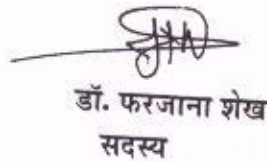 डॉ. फरजाना शेख
सदस्य